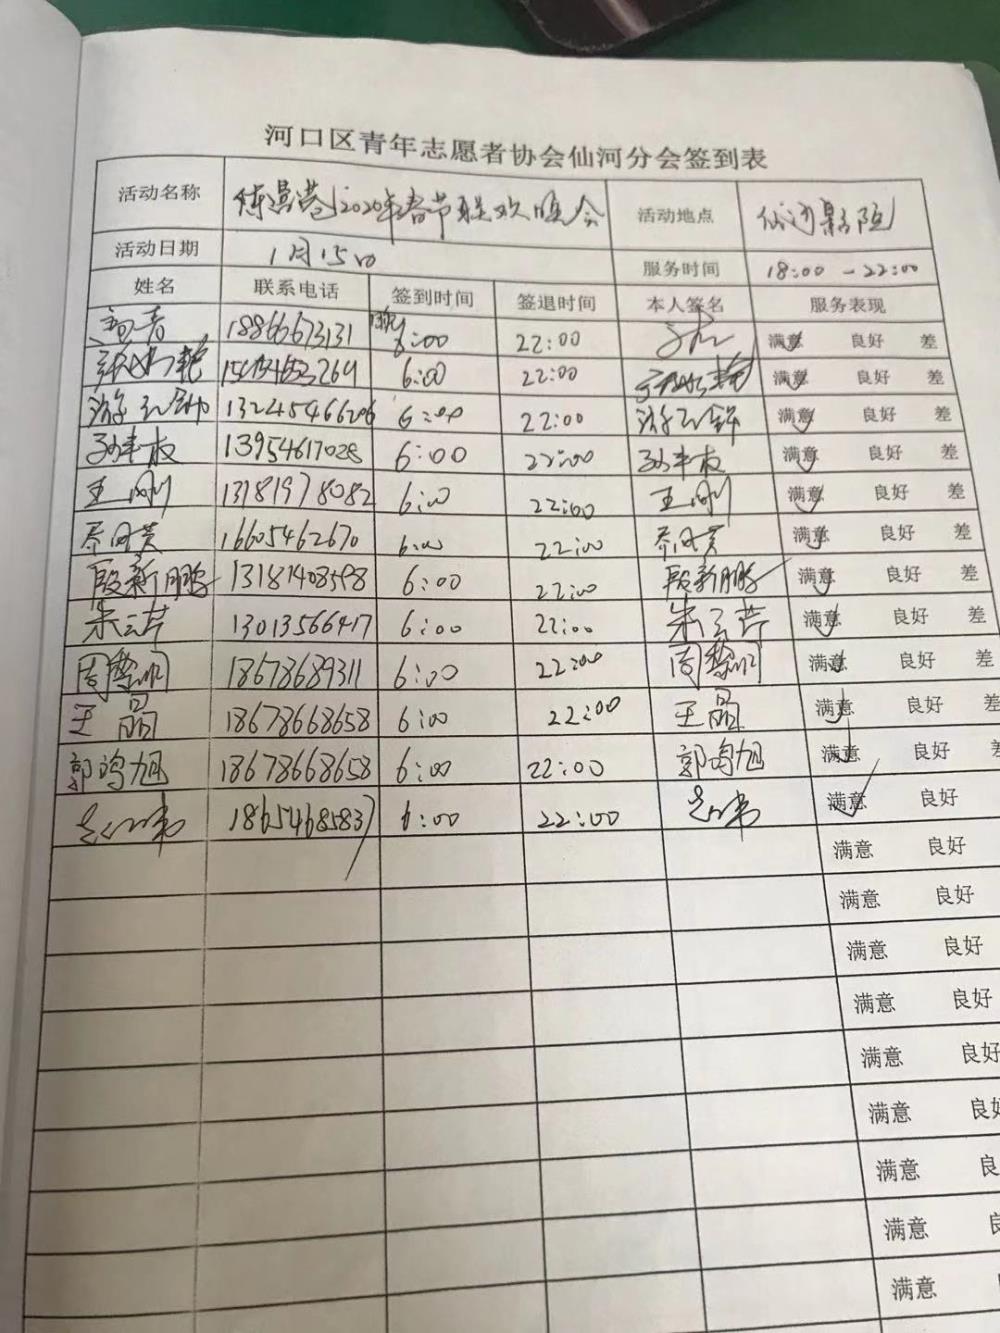 河口区青年志愿者协会仙河分会签到表
活动名称 2020年春节联欢晚会 活动地点 仙河影院
活动日期 1月15日 服务时间 18:00-22:00
姓名 联系电话 签到时间 签退时间 本人签名 服务表现
18866673131 6:00 22:00 满意 良好 差
6:00 22:00 满意 良好 差
13245466206 6:00 22:00 满意 良好 差
13954617028 6:00 22:00 满意 良好 差
王刚 13181978082 6:00 22:00 王刚 满意 良好 差
乔同芙 16605462670 6:00 22:00 乔同芙 满意 良好 差
殷新鹏 13181408598 6:00 22:00 殷新鹏 满意 良好 差
朱云芹 13013566417 6:00 22:00 朱云芹 满意 良好 差
周黎明 18678689311 6:00 22:00 周黎明 满意 良好 差
王晶 18678668658 6:00 22:00 王晶 满意 良好 差
郭鸣旭 18678668658 6:00 22:00 郭鸣旭 满意 良好 差
18654685837 6:00 22:00 满意 良好
满意 良好
满意 良好
满意 良好
满意 良好
满意 良好
满意 良好
满意 良
满意 良
满意